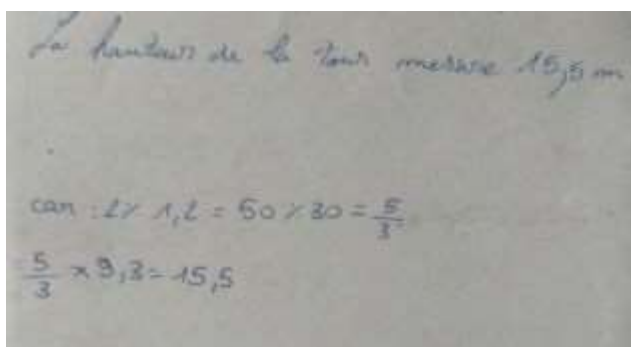 La hauteur de la tour mesure 15,5 m
car : 2 × 1,2 = 50 × 30 = 5/3
5/3 × 9,3 = 15,5